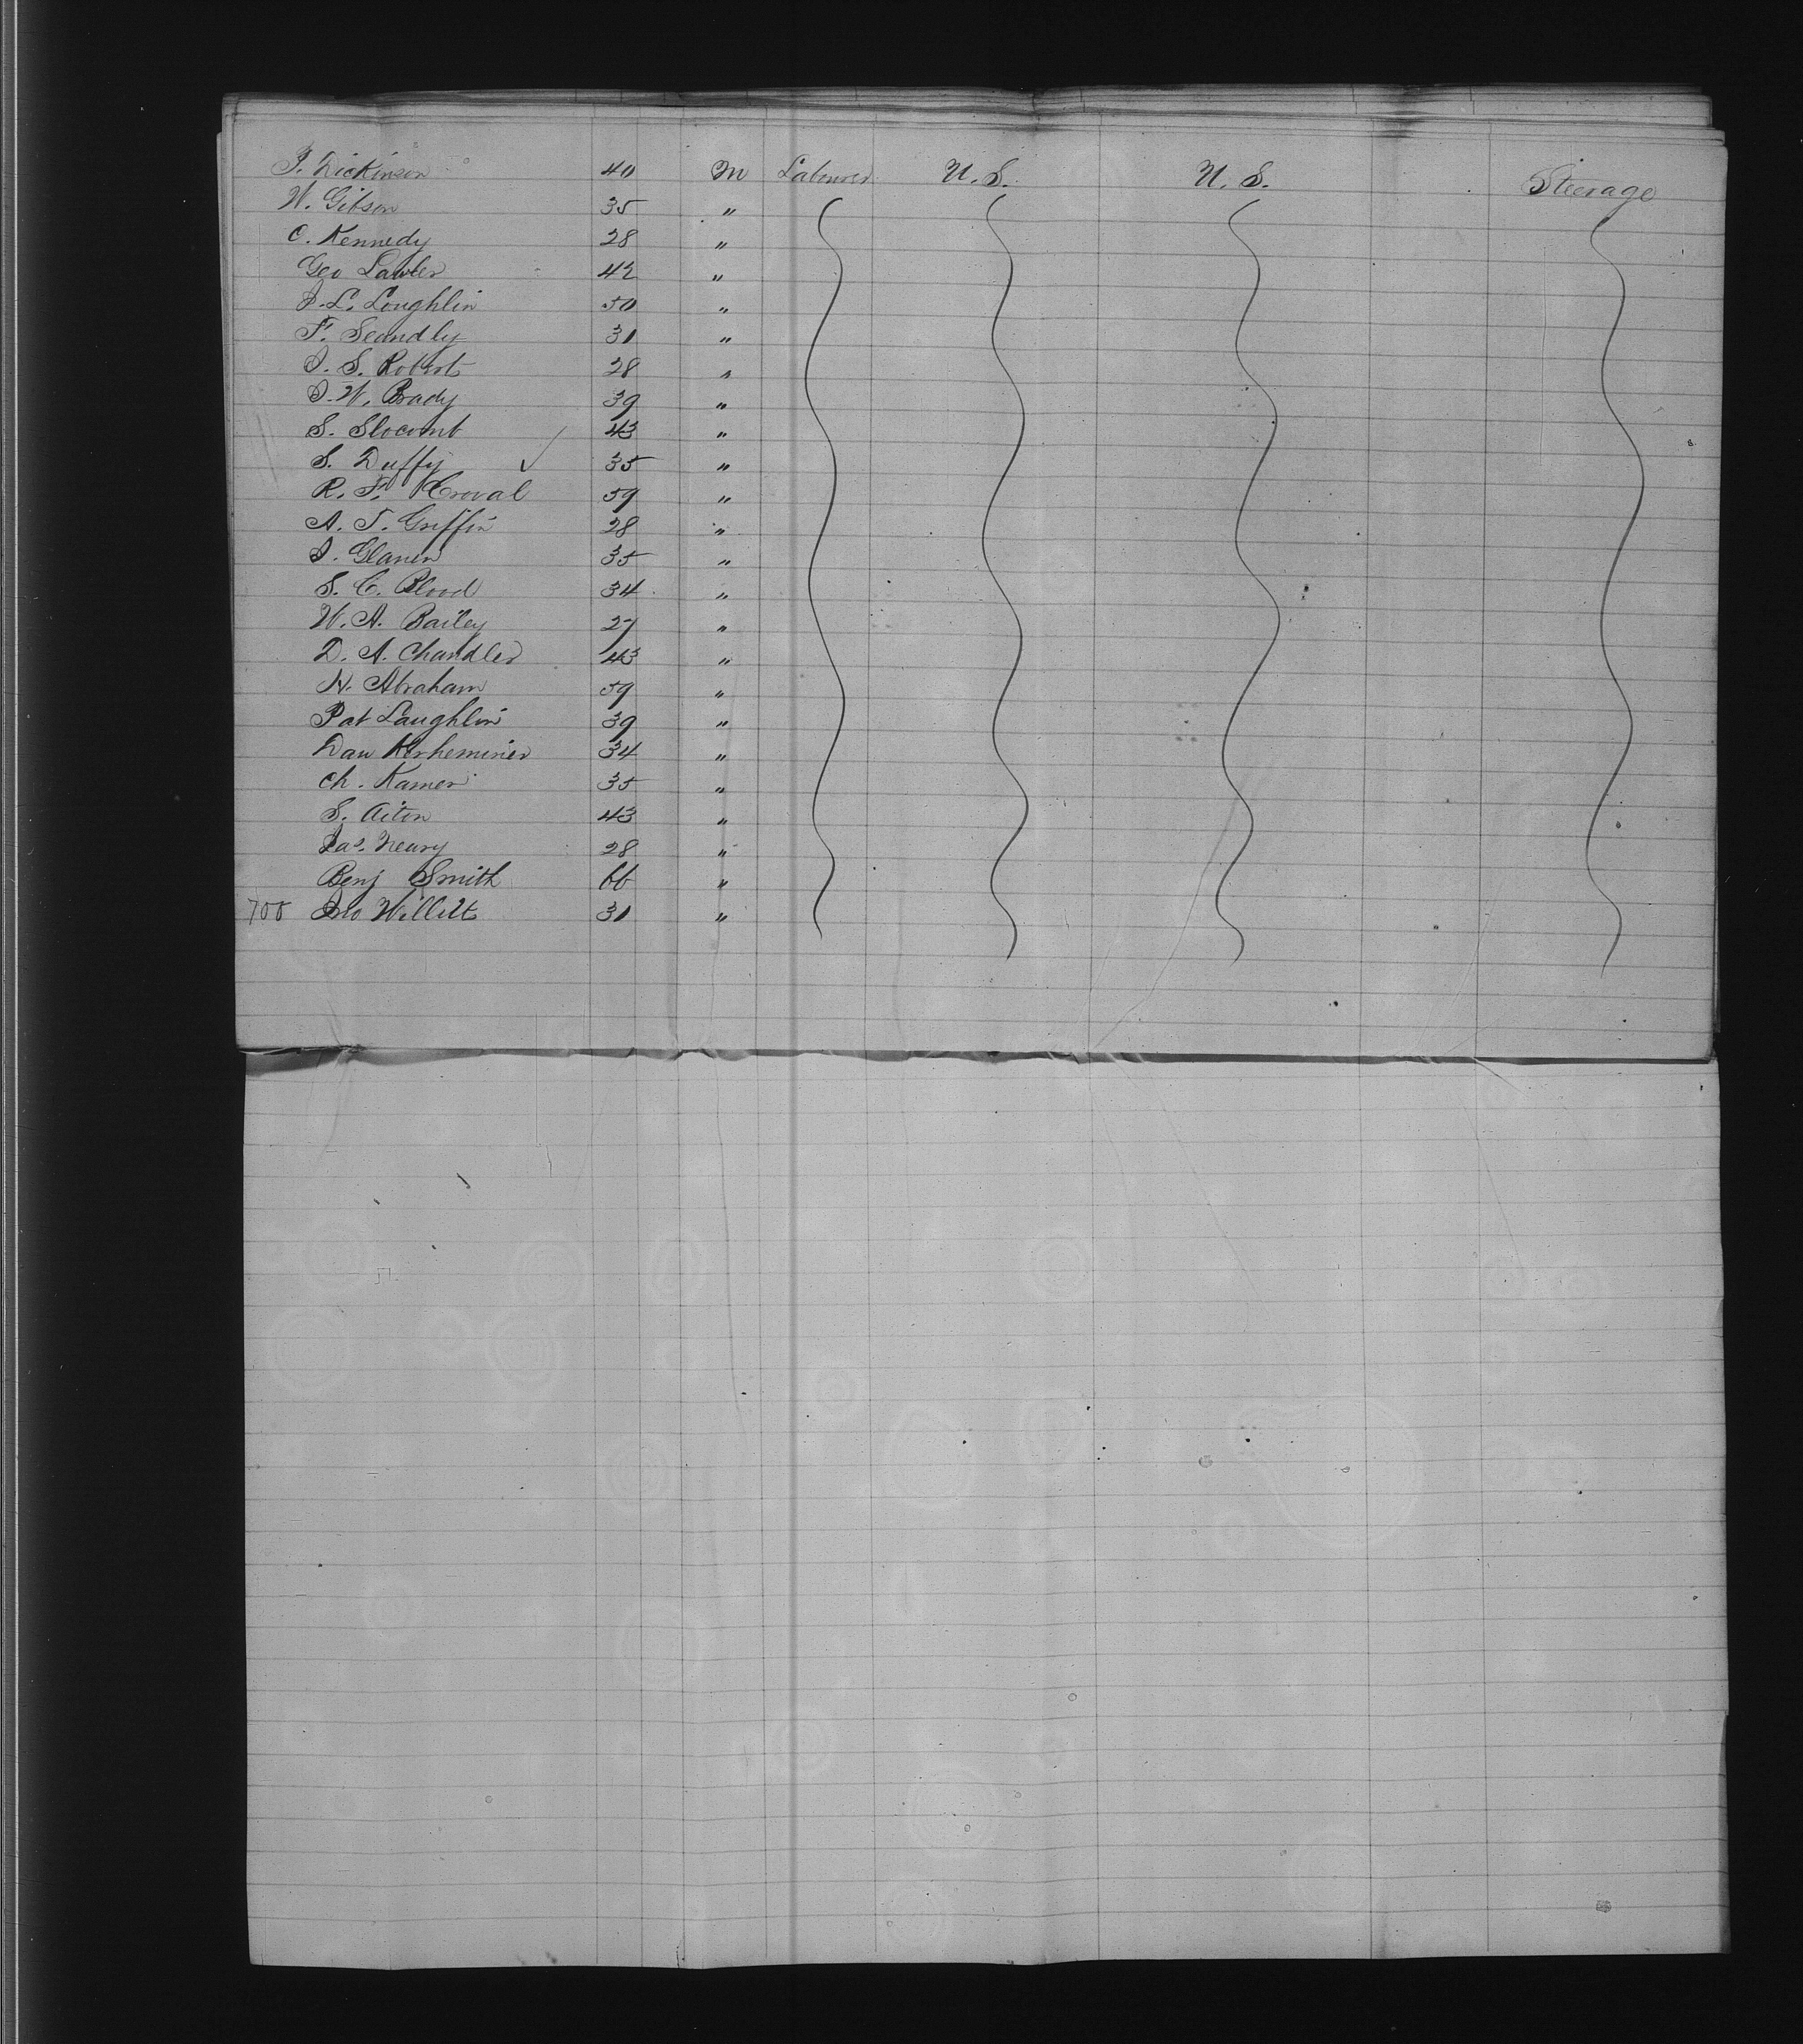 J. Dickinson 40 M Labourer U.S. U.S. Steerage
W. Gibson 35 "
C. Kennedy 28 "
Geo Lawler 42 "
J. L. Loughlin 50 "
F. Scandly 31 "
J. S. Robert 28 "
J. W. Brady 39 "
S. Slocomb 43 "
S. Duffy ✓ 35 "
R. F. 59 "
A. T. Griffin 28 "
J. 35 "
S. C. Blood 34 "
W. A. Bailey 27 "
D. A. Chandler 43 "
N. Abraham 59 "
Pat Laughlin 39 "
Dan 34 "
Ch. Kamer 35 "
S. Aiton 43 "
Jas. Neary 28 "
Benj Smith 66 "
700 Jno Willett 31 "